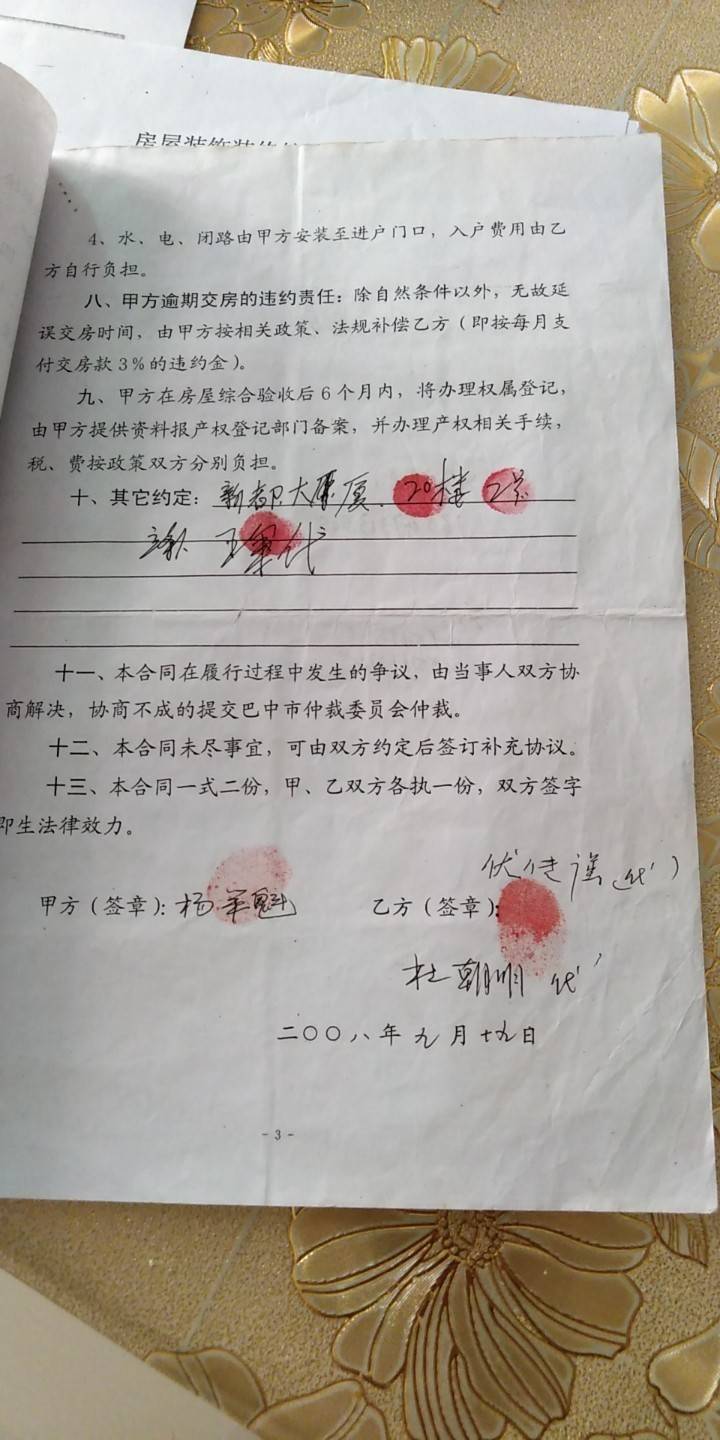 房屋装饰装修
4、水、电、闭路由甲方安装至进户门口，入户费用由乙
方自行负担。
八、甲方逾期交房的违约责任：除自然条件以外，无故延
误交房时间，由甲方按相关政策、法规补偿乙方（即按每月支
付交房款3%的违约金）。
九、甲方在房屋综合验收后6个月内，将办理权属登记，
由甲方提供资料报产权登记部门备案，并办理产权相关手续，
税、费按政策双方分别负担。
十、其它约定：新都大厦 20楼 2号
代
十一、本合同在履行过程中发生的争议，由当事人双方协
商解决，协商不成的提交巴中市仲裁委员会仲裁。
十二、本合同未尽事宜，可由双方约定后签订补充协议。
十三、本合同一式二份，甲、乙双方各执一份，双方签字
即生法律效力。
（代）
甲方（签章）：杨军魁 乙方（签章）：
杜朝明 代
二〇〇八年九月十九日
-3-